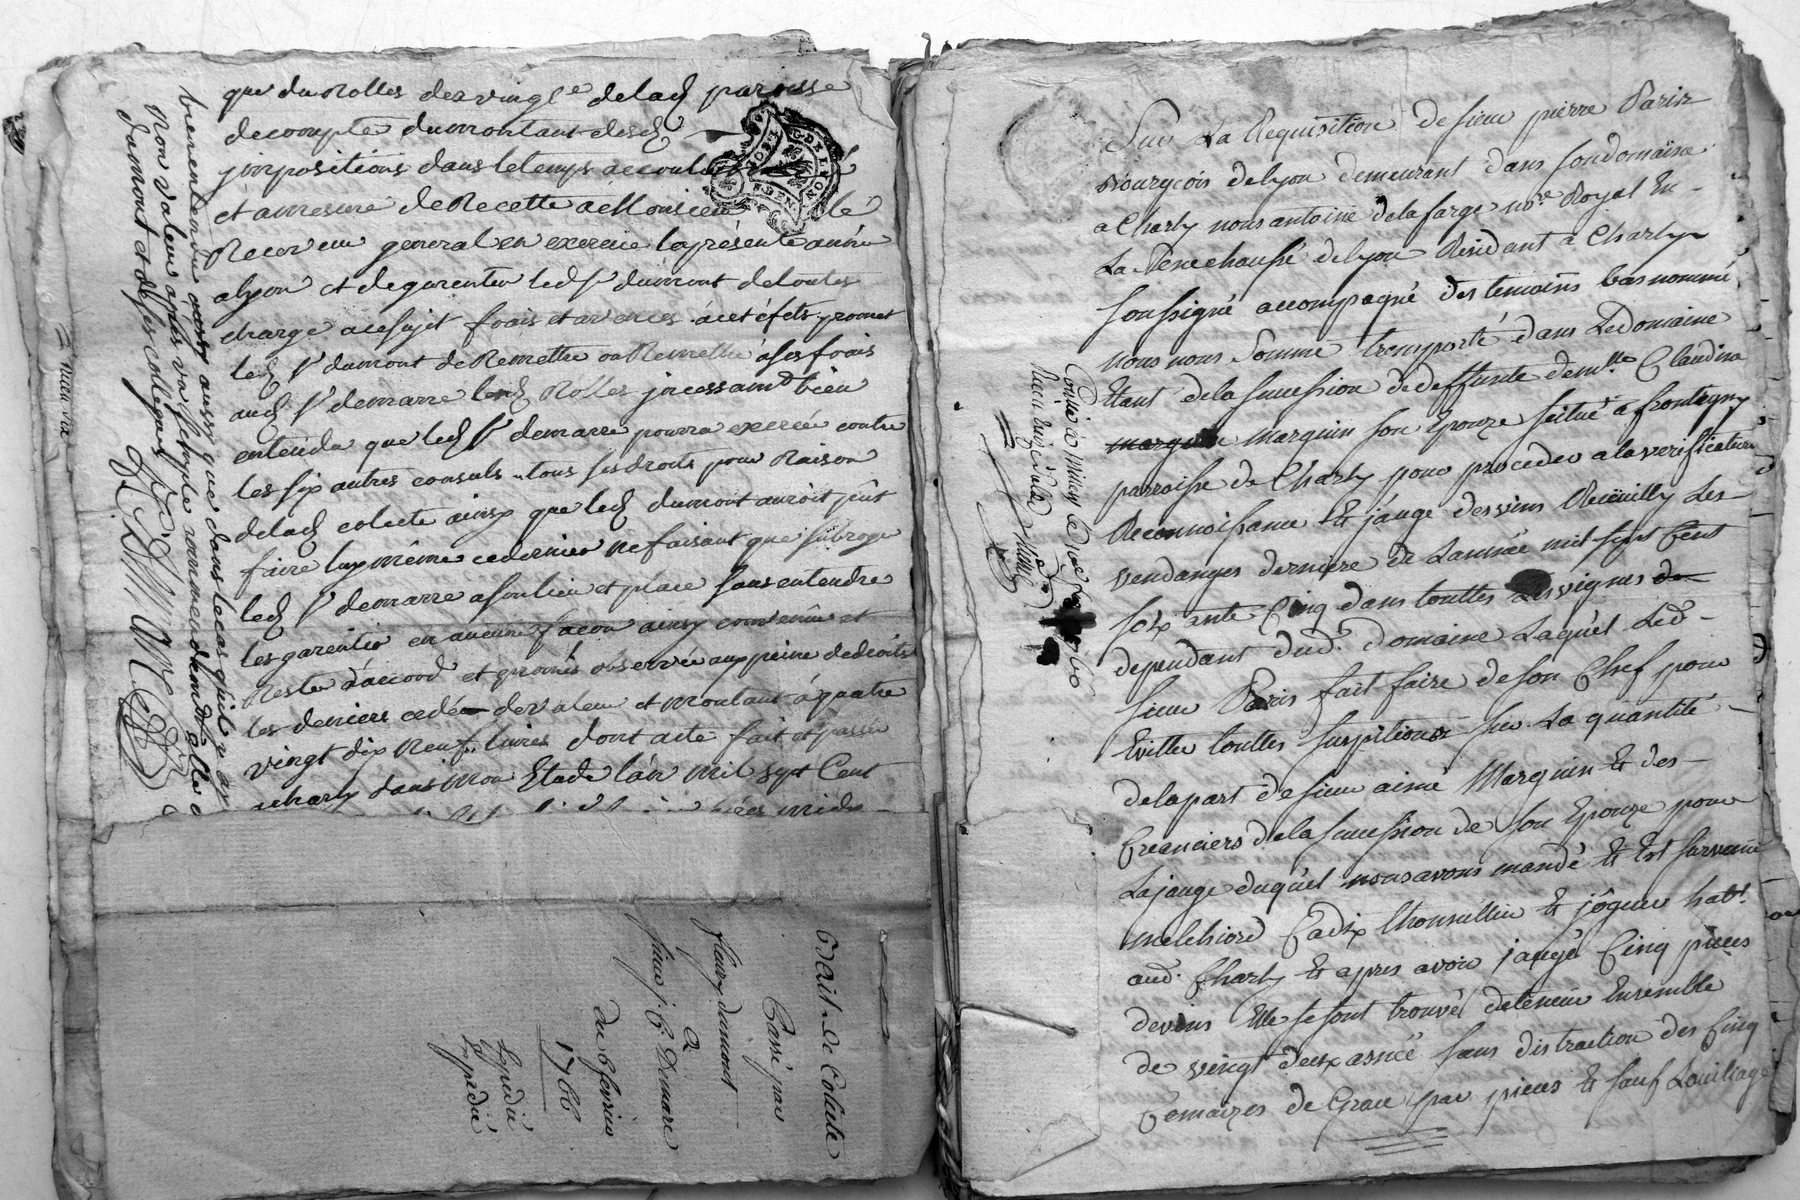 que du Rolles des vingt.e delad paroisse
de compte du montant desd
jmpositions dans le temps
et amesure de Recette à Monsieur le
Receveur general en exercice la présente année
alyon et de garentir led Sr dumont de toutes
charge acesujet frais et avences acet éfets promet
led Sr dumont de Remettre ou Remettre à ses frais
aud Sr demarre lesd Rolles jncessamt bien
entendu que led Sr demarre pourra exercée contre
les six autres consuls tous ses droits pour Raison
delad colecte ainsy que led dumont auroit pût
faire luy même ce dernier ne faisant que subroger
led Sr demarre a son lieu et place sans entendre
les garentir en aucune facon ainsy convenû et
Reste d'accord et promis observée aux peine de droits
les deniers cedée de valeur et montant à quatre
vingt dix neuf livres dont acte fait et passée
acharly dans mon Etude l'an mil sept Cent
bien entendu aussy que dans le cas qu'il y ay
Non valeur après va remplir dumont alle
damont et de ses collegues
De Marre
ne varie
Trait de Colecte
Passé par
fleury dumont
a
sieur j C Demare
du 6 fevrier
1766
Expedié
Expédié
Sur La Requisition de sieur pierre Paris
Bourgeois delyon demeurant dans son domaine
a Charly nous antoine delafarge nore Royal En
La Senechaussé delyon Résidant à Charly
soussigné accompagné des temoins bas nommé
nous nous Somme transporté dans Le domaine
Etant de la succession de deffunte demlle Claudine
marguin Marguin son Epouze scitué a frontigny
parroisse de Charly pour proceder a la verification
Reconnoissance Et jauge des vins Recüeilly Les
vendanges derniere de L'année mil sept Cent
soix ante Cinq dans touttes Les vignes de
dependant dud. Domaine Laquel Led
sieur Paris fait faire de son Chef pour
Eviter touttes suspitions sur La quantité
de la part de sieur aimé Marguin Et des
Creanciers de la succession de son Epouze pour
La jauge duquel nous avons mandé Et Est survenu
melchiord Cadix thonnellier Et jôgeur habt.
aud. Charly Et apres avoir jaugé Cinq pieces
de vins Elle se sont trouvés deteneur Ensemble
de vingt deux asnée sans distraction des Cinq
Semaizes de Grace par pieces Et sauf Louillage